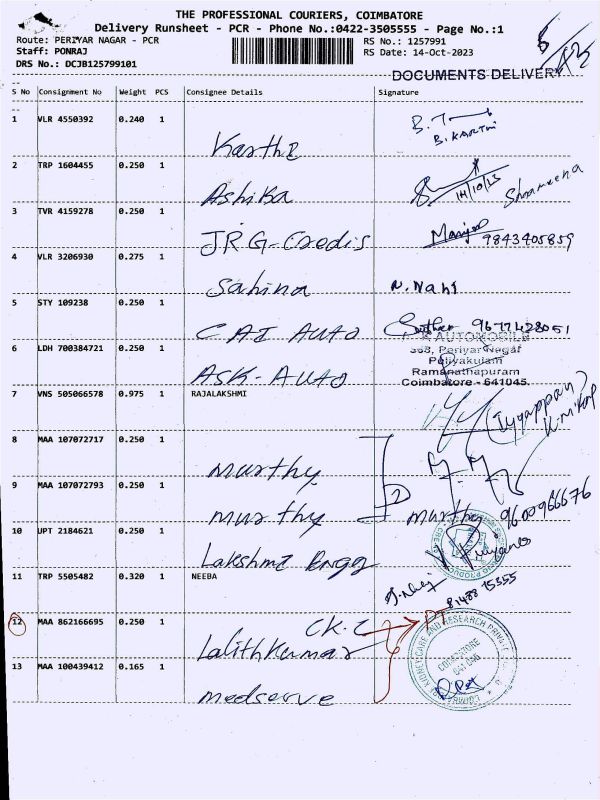 THE PROFESSIONAL COURIERS, COIMBATORE
Delivery Runsheet - PCR - Phone No.:0422-3505555 - Page No.:1
Route: PERIYAR NAGAR - PCR
RS No.: 1257991
Staff: PONRAJ
RS Date: 14-Oct-2023
DRS No.: DCJB125799101
DOCUMENTS DELIVERY
S No Consignment No Weight PCS Consignee Details Signature
1 VLR 4550392 0.240 1
Karthi
B. KARTHI
2 TRP 1604455 0.250 1
Ashika
14/10/23
Sharmeena
3 TVR 4159278 0.250 1
JRG-Credis
9843405859
4 VLR 3206930 0.275 1
Sahina
N. Nahi
5 STY 109238 0.250 1
CAI AUTO
9677428051
6 LDH 700384721 0.250 1
ASK-AUTO
K AUTOMOBILE
368, Periyar Nagar
Puliyakulam
Ramanathapuram
Coimbatore - 641045.
7 VNS 505066578 0.975 1 RAJALAKSHMI
(Iyyappan)
8 MAA 107072717 0.250 1
murthy
9 MAA 107072793 0.250 1
murthy
murthy 9600966676
10 UPT 2184621 0.250 1
Lakshmi Engg
11 TRP 5505482 0.320 1 NEEBA
81488 75355
12 MAA 862166695 0.250 1
CK.C
Lalithkumar
PT
KIDNEY CARE AND RESEARCH PRIVATE
COIMBATORE
641 045
13 MAA 100439412 0.165 1
medserve